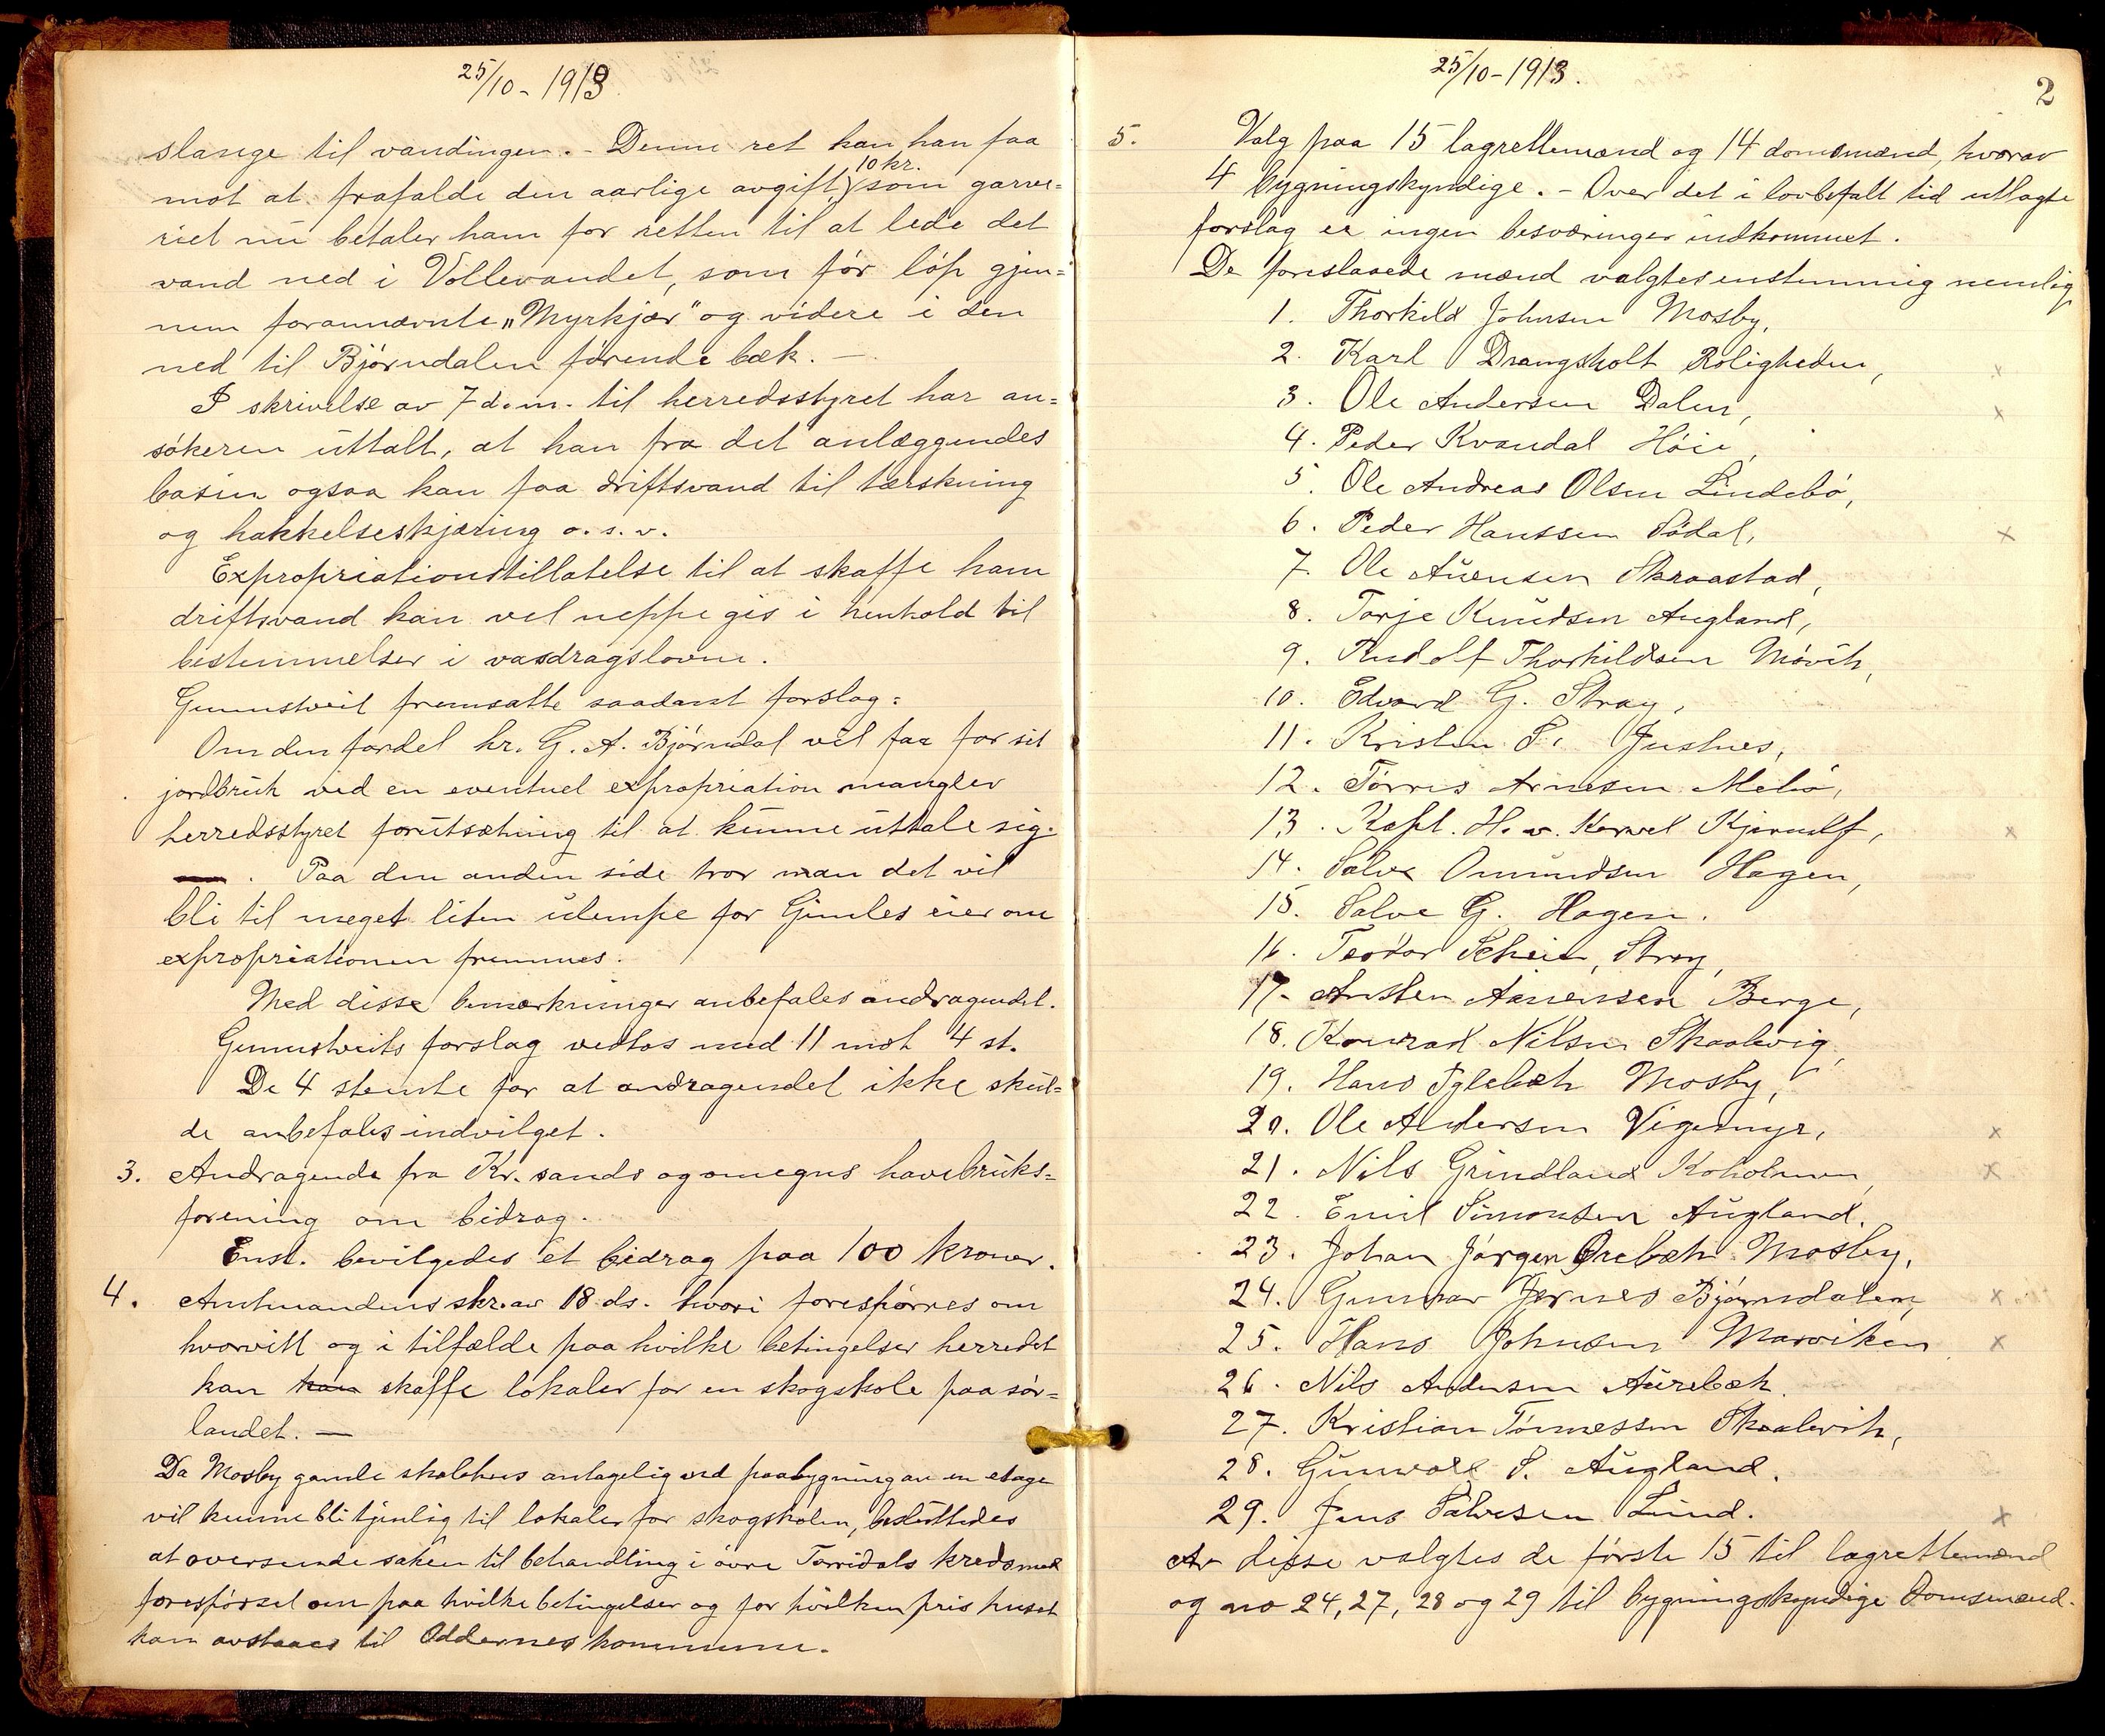 25/10 - 1913
slange til vandingen. - Denne ret kan han faa
mot at frafalde den aarlige avgift, 10 kr. som garve=
riet nu betaler ham for retten til at lede det
vand ned i Vollevandet, som før løp gjen=
nem forannævnte "Myrkjær" og videre i den
ned til Bjørndalen førende bæk. -
I skrivelse av 7 d.m. til herredsstyret har an=
søkeren uttalt, at han fra det anlæggendes
basin ogsaa kan faa driftsvand til tærskning
og hakkelseskjæring o. s. v.
Expropriationstillatelse til at skaffe ham
driftsvand kan vel neppe gis i henhold til
bestemmelser i vasdragsloven.
Gunnstveit fremsatte saadant forslag:
Om den fordel hr. G. A. Bjørndal vil faa for sit
jordbruk ved en eventuel expropriation mangler
herredsstyret forutsætning til at kunne uttale sig.
Paa den anden side tror man det vil
bli til meget liten ulempe for Gimles eier om
expropriationen fremmes.
Med disse bemærkninger anbefales andragendet.
Gunnstveits forslag vedtos med 11 mot 4 st.
De 4 stemte for at andragendet ikke skul=
de anbefales indvilget.
3. Andragende fra Kr.sands og omegns havebruks=
forening om bidrag.
Enst. bevilgedes et bidrag paa 100 kroner.
4. Amtmandens skr. av 18 ds. hvori forespørres om
hvorvitt og i tilfælde paa hvilke betingelser herredet
kan kan skaffe lokaler for en skogskole paa sør=
landet. -
Da Mosby gamle skolehus antagelig ved paabygning av en etage
vil kunne bli tjenlig til lokaler for skogskolen, besluttedes
at oversende saken til behandling i øvre Torridals kreds med
forespørsel om paa hvilke betingelser og for hvilken pris huset
kan avstaaes til Oddernes kommune.
25/10 - 1913.
2
5. Valg paa 15 lagrettemænd og 14 domsmænd, hvorav
4 bygningskyndige. - Over det i lovbefalt tid utlagte
forslag er ingen besværinger indkommet.
De foreslaaede mænd valgtes enstemmig nemlig
1. Thorkild Johnsen Mosby,
2. Karl Drangsholt Roligheden,
3. Ole Andersen Dalen,
4. Peder Kvandal Høie,
5. Ole Andreas Olsen Lindebø,
6. Peder Hanssen Sødal,
7. Ole Auensen Skraastad,
8. Torje Knudsen Augland,
9. Rudolf Thorkildsen Møvik,
10. Edvard G. Stray,
11. Kristen S. Justnes,
12. Tørres Arnesen Mebø,
13. Kapt. H. v. Kjerulf,
14. Salve Omundsen Hagen,
15. Salve G. Hagen.
16. Teodor Scheie, Strøy,
17. Ansten Aanensen Berge,
18. Konrad Nilsen Skaalevig,
19. Hans Iglebæk Mosby,
20. Ole Andersen Vigemyr,
21. Nils Grindland Koholmen,
22. Emil Simonsen Augland.
23. Johan Jørgen Ørebæk Mosby,
24. Gunnar Jernes Bjørndalen,
25. Hans Johnsen Marviken
26. Nils Andersen Aurebæk.
27. Kristian Tønnessen Skaalevik,
28. Gunvald S. Augland.
29. Jens Salvesen Lund.
Av disse valgtes de første 15 til lagrettemænd
og no 24, 27, 28 og 29 til bygningskyndige domsmænd.